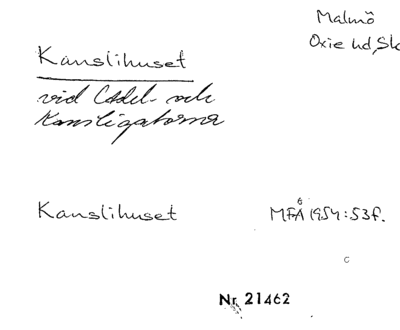 Malmö
Oxie hd, Sk
Kanslihuset
vid Adel- och
Kansligatorna
Kanslihuset MFÅ 1954:53f.
C
Nr 21462